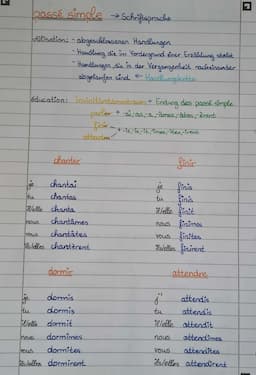 passé simple → Schriftsprache
utilisation: - abgeschlossenen Handlungen
- Handlung die im Vordergrund einer Erzählung steht
- Handlungen, die in der Vergangenheit aufeinander
abgelaufen sind ← Handlungskette
+ Endung des passé simple
parler + -ai, -as, -a, -âmes, -âtes, -èrent
finir
attendre + -is, -is, -it, -îmes, -îtes, -irent
chanter finir
je chantai je finis
tu chantas tu finis
il/elle chanta il/elle finit
nous chantâmes nous finîmes
vous chantâtes vous finîtes
ils/elles chantèrent ils/elles finirent
dormir attendre
je dormis j' attendis
tu dormis tu attendis
il/elle dormit il/elle attendit
nous dormîmes nous attendîmes
vous dormîtes vous attendîtes
ils/elles dormirent ils/elles attendirent